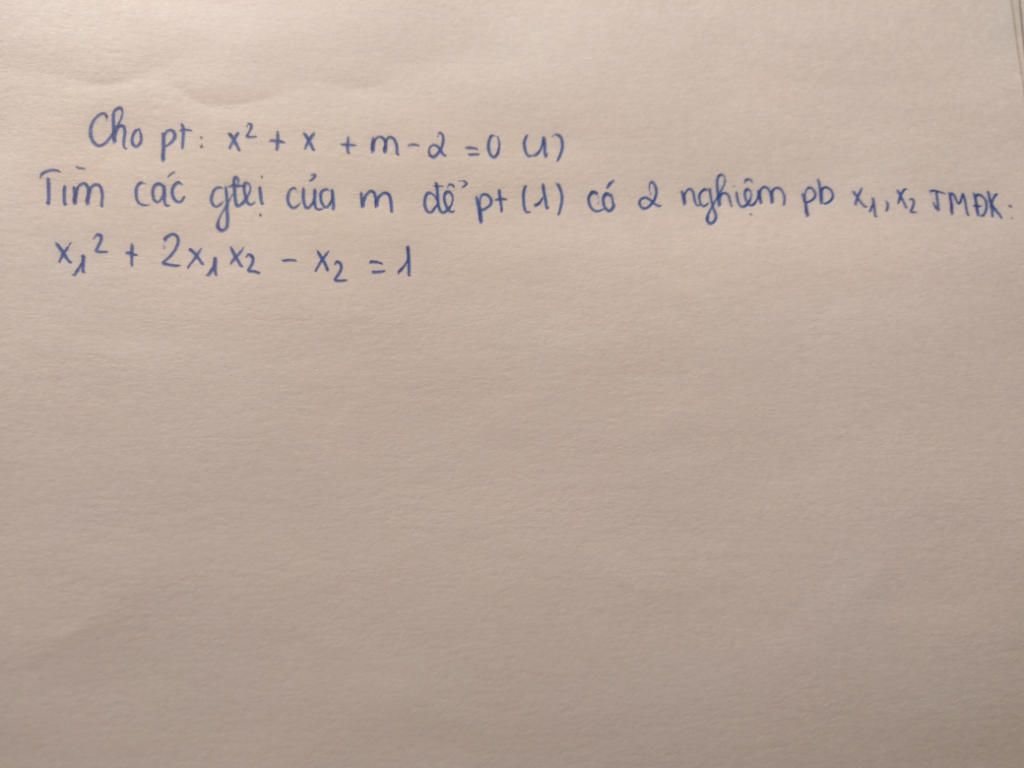 Cho pt: x² + x + m - 2 = 0 (1)
Tìm các gtrị của m để pt (1) có 2 nghiệm pb x₁, x₂ TMĐK:
x₁² + 2x₁x₂ - x₂ = 1